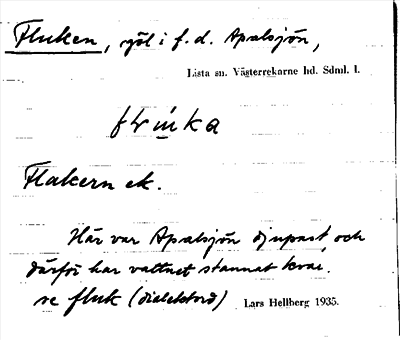 Fluken, göl i f.d. Apalsjön,
Lista sn. Västerrekarne hd. Sdml. l.
Flakern ek.
Här var Apalsjön djupast och
därför har vattnet stannat kvar.
se fluk (dialektord) Lars Hellberg 1935.